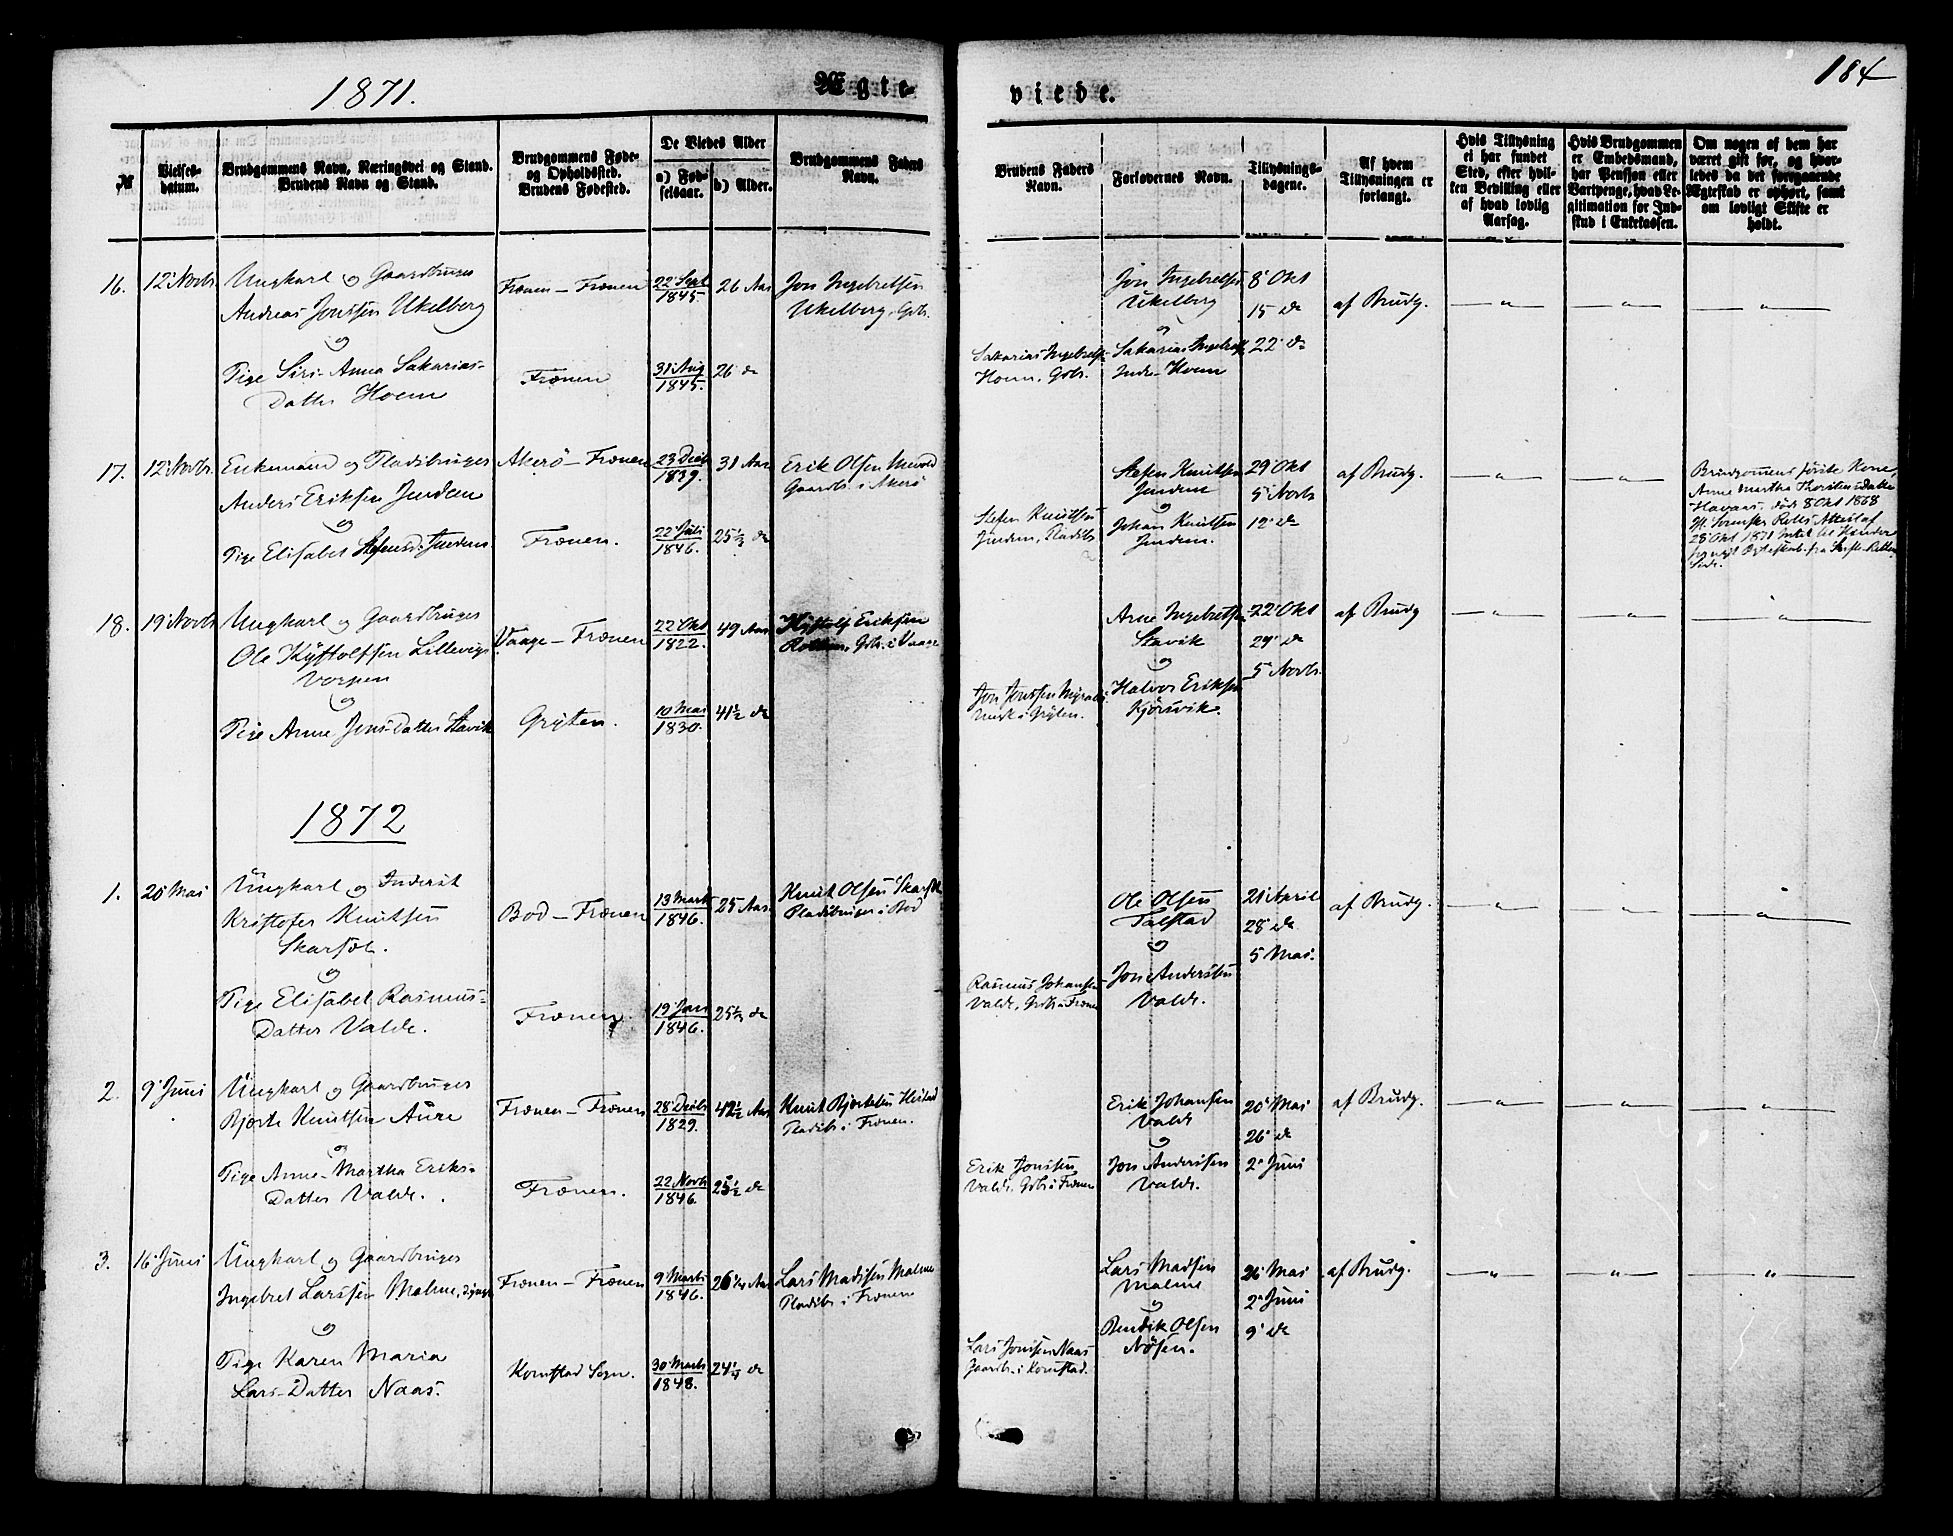 1871.
Ægte-
viede.
184
№
Vielses-
datum.
Brudgommens Navn, Næringsvei og Stand.
Brudens Navn og Stand.
Brudgommens Føde-
og Opholdssted.
Brudens Fødested.
De Viedes Alder
a) Fød-
selsaar.
b) Alder.
Brudgommens Faders
Navn.
Brudens Faders
Navn.
Forlovernes Navn.
Tillysnings-
dagene.
Af hvem
Tillysningen er
forlangt.
Hvis Tillysning
ei har fundet
Sted, efter hvil-
ken Bevilling eller
af hvad lovlig
Aarsag.
Hvis Brudgommen
er Embedsmand,
har Pension eller
Vartpenge, hvad Le-
gitimation for Ind-
skud i Enkekassen.
Om nogen af dem har
været gift før, og hvor-
ledes da det foregaaende
Ægteskab er ophørt, samt
om lovligt Skifte er
holdt.
16.
12' Novbr
Ungkarl og Gaardbruger
Andreas Jonssen Ukelberg
og
Pige Siri-Anna Sakarias-
Datter Hoem
Frænen – Frænen
Frænen
22' Sept
1845.
26 Aar
31' Aug
1845.
26 do
Jon Ingebretsen
Ukelberg, Gbr.
Sakarias Ingebretsen
Hoem, Gbr.
Jon Ingebretsen
Ukelberg
og
Sakarias Ingebretsen
Indre-Hoem
8' Okt
15 do
22' do
af Brudg.
17.
12' Novbr.
Enkemand og Pladsbruger
Anders Eriksen Jendem
og
Pige Elisabet Stefensdr. Jendem.
Akerö – Frænen
Frænen.
23 Decbr
1839.
31 Aar
22' Juli
1846.
25 1/3 do
Erik Olsen
Gaardb. i Akerö
Stefen Knutsen
Jendem, Pladsbr
Stefen Knutsen
Jendem
og
Johan Knutsen
Jendem.
29' Okt
5' Novbr
12' do
af Brudg.
Brudgomens förste Kone,
Anne Martha Thorstensdatter
Havaas, död 8 Okt 1868
Attest af
28' Okt 1871 intet til Hinder
for nyt Ægteskab fra Skifte-Rettens
Side.
18.
19' Novbr
Ungkarl og Gaardbruger
Ole Kystolfsen Lillevigs
Vorpen
og
Pige Anne Jons-Datter Stavik
Vaage – Frænen
Gryten.
22' Okt
1822.
49 Aar
10 Mai
1830.
41 1/2 do
Kystolf Eriksen
Gbr. i Vaage
Jon Jonssen
i Gryten.
Arne Ingebretsen
Stavik
og
Halvor Eriksen
Kjörsvik.
22' Okt
29' do
5' Novbr.
af Brudg
1872
1.
20' Mai
Ungkarl og Inderst
Kristofer Knutsen
Skarsöt.
og
Pige Elisabet Rasmus-
Datter Valde.
Bod – Frænen
Frænen.
13 Marts
1846.
25 Aar.
19' Jan
1846.
25 1/3 do
Knut Olsen Skarsöt
Pladsbruger i Bod
Rasmus Johansen
Valde, Gbr. i Frænen
Ole Olsen
Talstad
og
Jon Andersen
Valde.
21' April
28' do
5 Mai.
af Brudg.
2.
9' Juni
Ungkarl og Gaardbruger
Bjerte Knutsen Aure
og
Pige Anne-Martha Eriks-
Datter Valde.
Frænen – Frænen
Frænen.
28' Decbr
1829.
42 1/2 Aar
22 Novbr
1846.
25 1/2 do
Knut Bjertesen
Pladsbr i Frænen.
Erik Jonssen
Valde, Gbr. i Frænen
Erik Johansen
Valde
og
Jon Andersen
Valde.
20' Mai
26' do
2' Juni
af Brudg.
3.
16' Juni
Ungkarl og Gaardbruger
Ingebret Larssen Malme,
og
Pige Karen Maria
Lars-Datter Naas.
Frænen – Frænen
Kornstad Sogn.
9' Marts
1846.
26 1/4 Aar
30' Marts
1848.
24 1/4 do
Lars Madssen Malme
Pladsbr i Frænen
Lars Jonssen Naas
Gaardbr. i Kornstad.
Lars Madsen
Malme
og
Bendik Olsen
Nösen.
26' Mai
2' Juni
9' do
af Brudg.